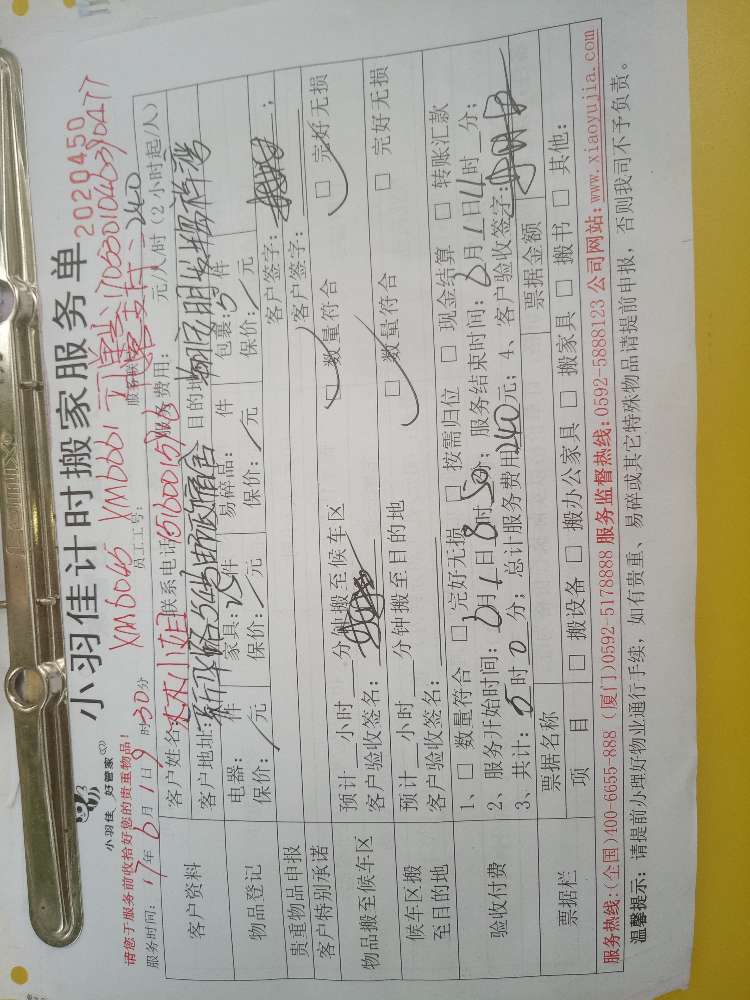 小羽佳 好管家
小羽佳计时搬家服务单 2020450
请您于服务前收拾好您的贵重物品! XM6045 XM6661
服务时间: 17年6月1日9时30分 员工工号:
客户资料 客户姓名 林小姐 联系电话 服务费用: 240 元/人/时 (2小时起/人)
客户地址: 新华路54号邮政宿舍 目的地
物品登记 电器: 件 家具: 件 易碎品: 件 包裹: 5件
保价: 元 保价: 元 保价: 元 保价: 元
贵重物品申报 客户签字: ;
客户特别承诺 客户签字:
物品搬至候车区 预计 小时 分钟搬至候车区 □ 数量符合 □ 完好无损
客户验收签名:
候车区搬至目的地 预计 小时 分钟搬至目的地 □ 数量符合 □ 完好无损
客户验收签名:
验收付费 1、□ 数量符合 □ 完好无损 □ 按需归位 □ 现金结算 □ 转账汇款
2、服务开始时间: 6月1日8时50分; 服务结束时间: 6月1日14时 分;
3、共计: 5时0分; 总计服务费用240元; 4、客户验收签字:
票据栏 票据名称 票据金额
项 目 □ 搬设备 □ 搬办公家具 □ 搬家具 □ 搬书 □ 其他:
服务热线:(全国)400-6655-888 (厦门)0592-5178888 服务监督热线:0592-5888123 公司网站:www.xiaoyujia.com
温馨提示: 请提前办理好物业通行手续, 如有贵重、易碎或其它特殊物品请提前申报, 否则我司不予负责。